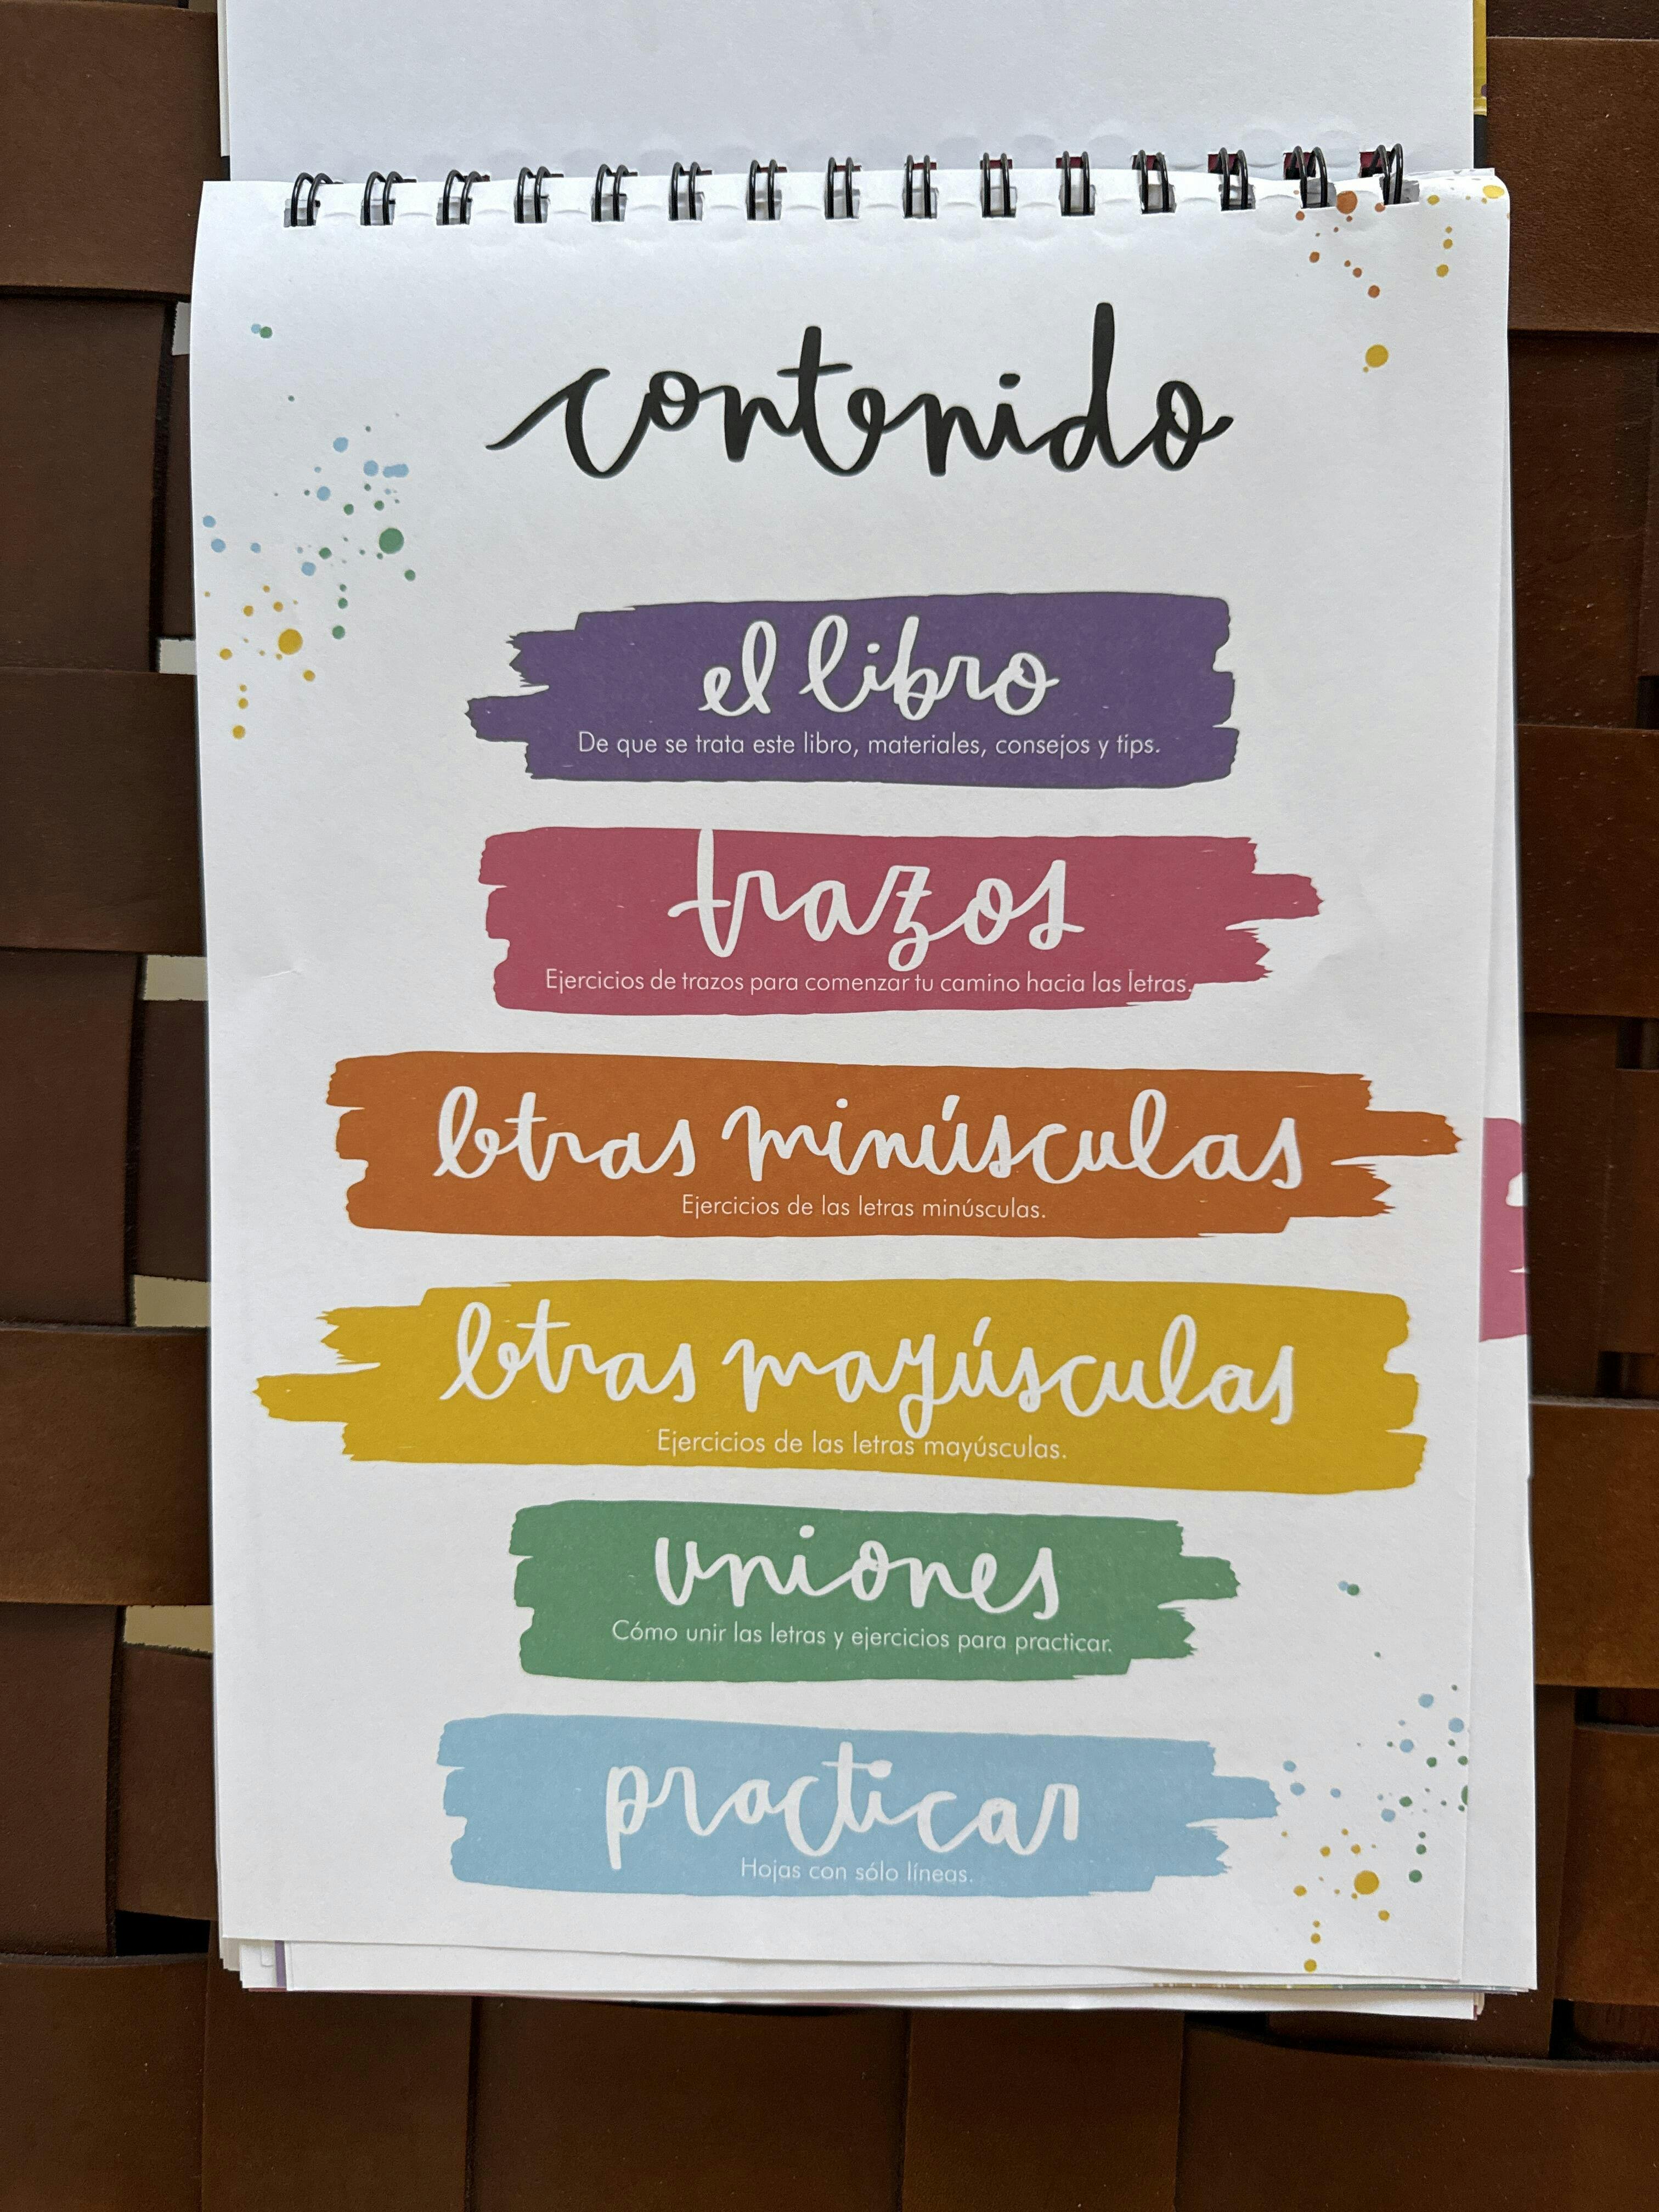 contenido
el libro
De que se trata este libro, materiales, consejos y tips.
trazos
Ejercicios de trazos para comenzar tu camino hacia las letras.
letras minúsculas
Ejercicios de las letras minúsculas.
letras mayúsculas
Ejercicios de las letras mayúsculas.
uniones
Cómo unir las letras y ejercicios para practicar.
practicar
Hojas con sólo líneas.